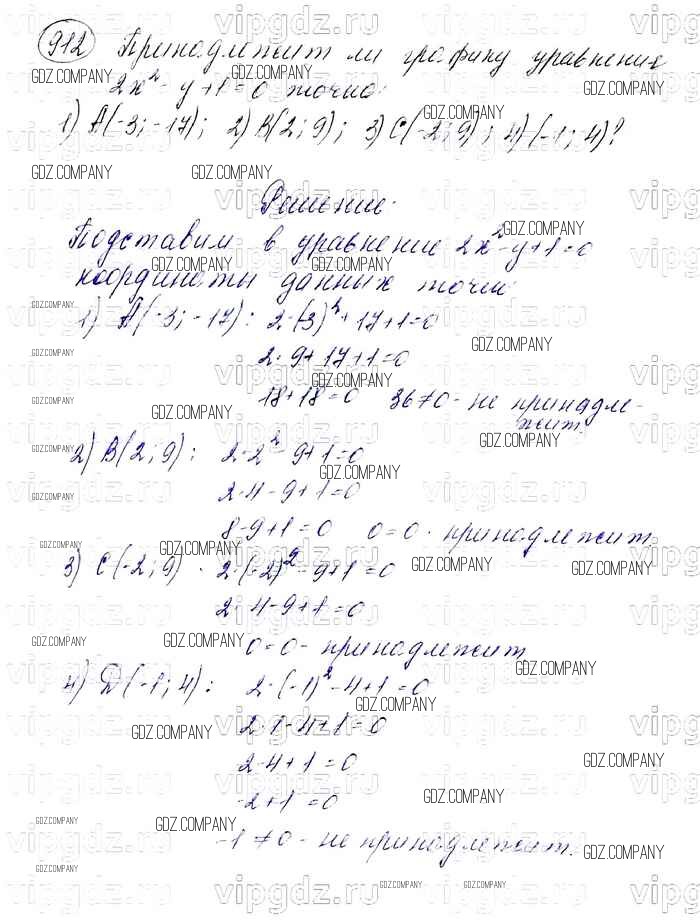 912 Принадлежит ли графику уравнения
2x² - y + 1 = 0 точка:
1) A(-3; -17); 2) B(2; 9); 3) C(-2; 9); 4) (-1; 4)?
Решение:
Подставим в уравнение 2x² - y + 1 = 0
координаты данных точек
1) A(-3; -17): 2·(-3)² + 17 + 1 = 0
2·9 + 17 + 1 = 0
18 + 18 = 0 36 ≠ 0 - не принадле-
жит.
2) B(2; 9): 2·2² - 9 + 1 = 0
2·4 - 9 + 1 = 0
8 - 9 + 1 = 0 0 = 0 - принадлежит
3) C(-2; 9) 2·(-2)² - 9 + 1 = 0
2·4 - 9 + 1 = 0
0 = 0 - принадлежит
4) D(-1; 4): 2·(-1)² - 4 + 1 = 0
2·1 - 4 + 1 = 0
2 - 4 + 1 = 0
-2 + 1 = 0
-1 ≠ 0 - не принадлежит.
GDZ.COMPANY
vipgdz.ru